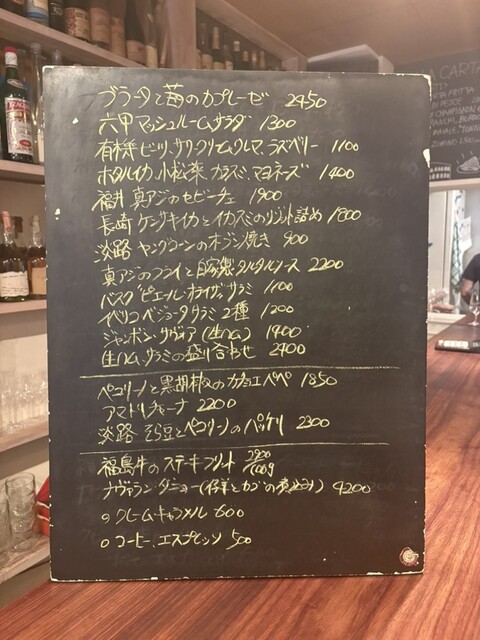 ブラータと苺のカプレーゼ 2450
六甲マッシュルームサラダ 1300
有機ビーツ、サワークリーム、クルマ、ラズベリー 1100
ホタルイカ、小松菜、カラスミ、マヨネーズ 1400
福井 真アジのセビーチェ 1900
長崎 ケンサキイカとイカスミのリゾット詰め 1800
淡路 ヤングコーンのオーブン焼き 900
真アジのフライと自家製タルタルソース 2200
バスク ピエール・オテイザ サラミ 1100
イベリコ ベジョータ サラミ 2種 1200
ジャンボン・サヴォア(生ハム) 1400
生ハム、サラミの盛り合わせ 2400
ペコリーノと黒胡椒のカチョエペペ 1850
アマトリチャーナ 2200
淡路 そら豆とペコリーノのパッケリ 2300
福島牛のステーキフリット 2900/100g
ナヴァラン・ダニョー(仔羊とカブの煮込み) 4200
○クレームキャラメル 600
○コーヒー、エスプレッソ 500
CARTA